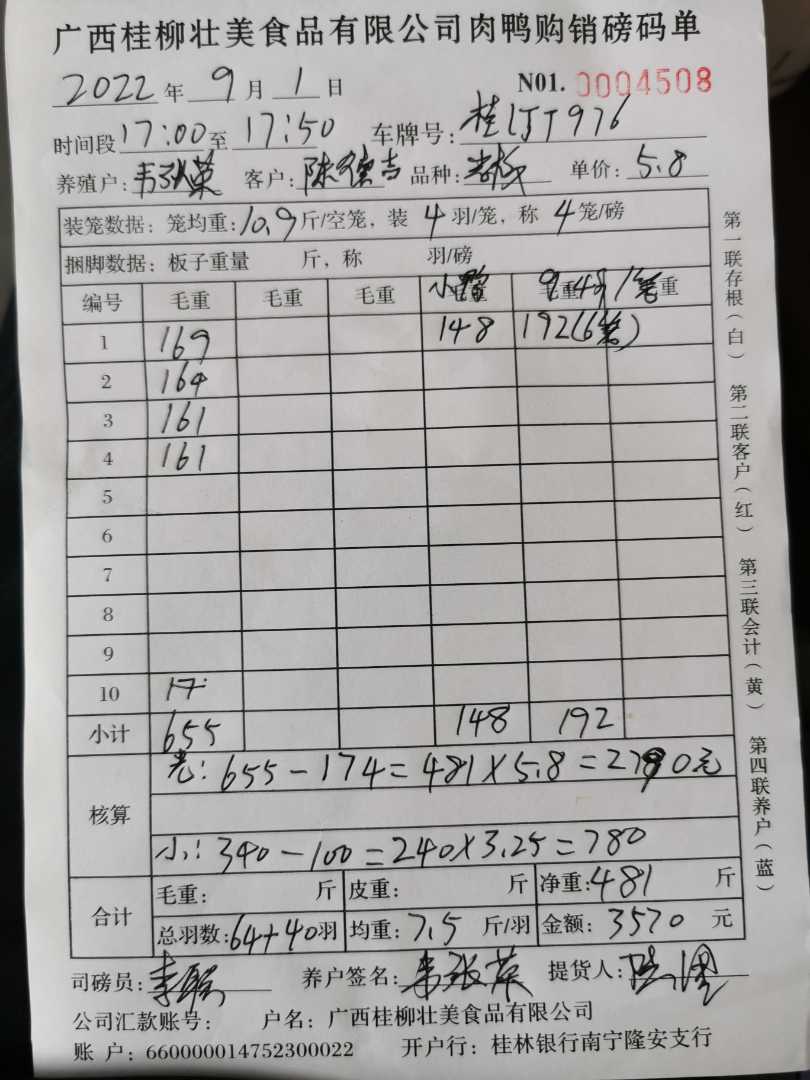 广西桂柳壮美食品有限公司肉鸭购销磅码单
2022年9月1日 N01. 0004508
时间段17:00至17:50 车牌号:桂LJJ976
养殖户: 客户:陈 吉 品种: 单价:5.8
装笼数据: 笼均重:10.9斤/空笼, 装4羽/笼, 称4笼/磅
捆脚数据: 板子重量 斤, 称 羽/磅
编号 毛重 毛重 毛重 小 重 /笔重
1 169 148 192(6笔)
2 164
3 161
4 161
5
6
7
8
9
10 17
小计 655 148 192
核算
光: 655-174=481×5.8=2790元
小: 340-100=240×3.25=780
合计
毛重: 斤 皮重: 斤 净重:481 斤
总羽数:64+40羽 均重:7.5 斤/羽 金额:3570 元
司磅员:李 养户签名: 英 提货人:
公司汇款账号: 户名:广西桂柳壮美食品有限公司
账 户:660000014752300022 开户行:桂林银行南宁隆安支行
第一联存根(白) 第二联客户(红) 第三联会计(黄) 第四联养户(蓝)